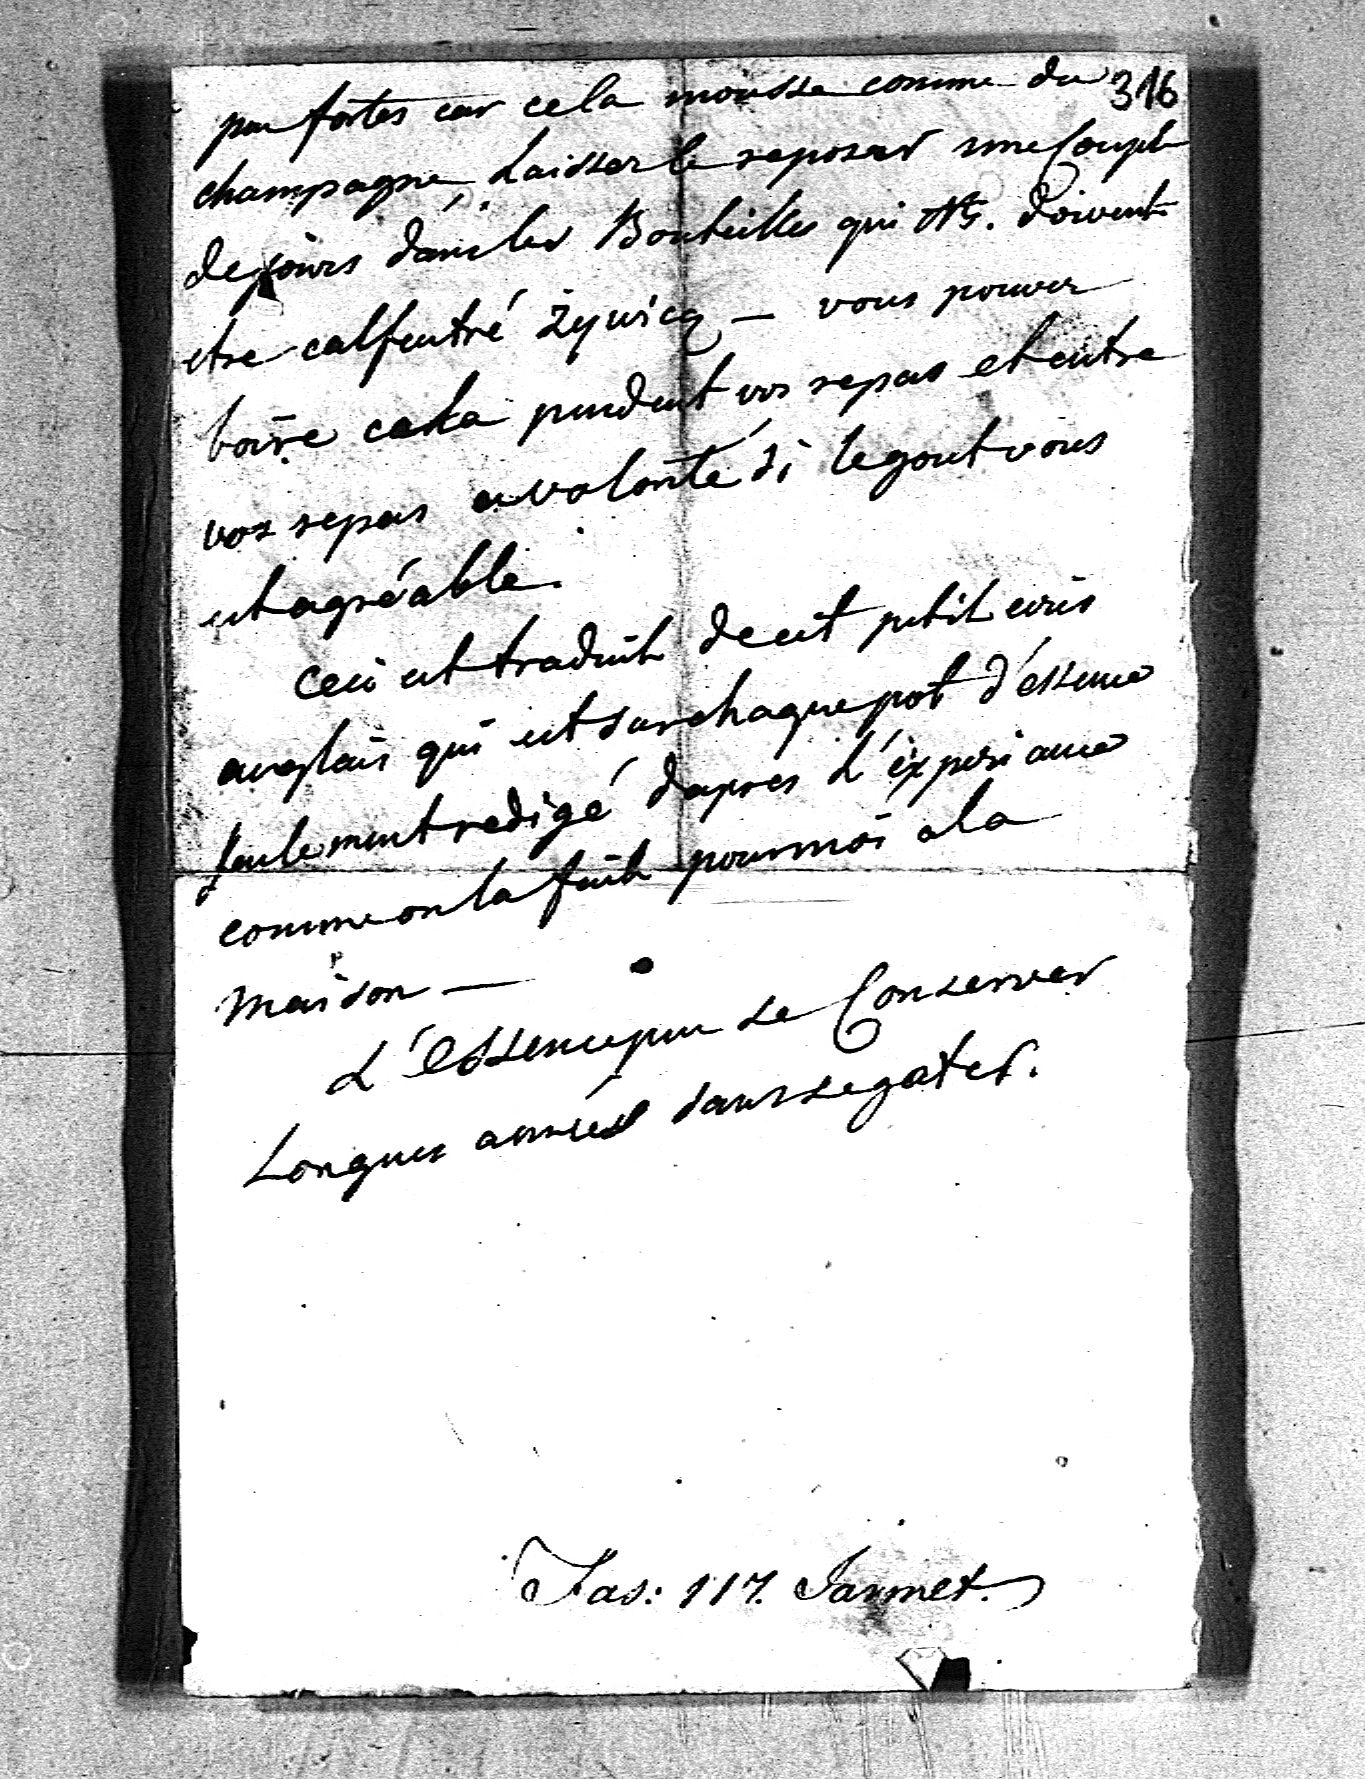 316
peu fortes car cela mousse comme du
champagne, Laisser le reposer une Couple
de jours dans les Bouteilles qui doivent
etre calfeutré żywicą — vous pouvez
boire cela pendent vos repas et entre
vos repas a volonté si le gout vous
est agréable.
Ceci est traduit de cet petit ecris
anglais qui est sur chaque pot d'éssence
seulement redigé dapres l'éxperiance
comme on la fait pour moi a la
maison —
L'éssence peu se Conserver
Longues années sans se gater.
Fas: 117. Jarmet.